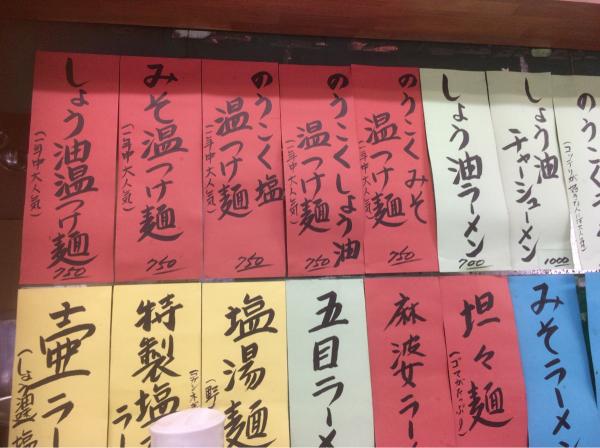 しょう油温つけ麺
(一年中大人気)
750
みそ温つけ麺
(一年中大人気)
750
のうこく塩
温つけ麺
(一年中大人気)
750
のうこくしょう油
温つけ麺
(一年中大人気)
750
のうこくみそ
温つけ麺
(一年中大人気)
750
しょう油ラーメン
700
しょう油
チャーシューメン
1000
のうこく
壷ラー
特製塩
ラー
塩湯麺
五目ラーメ
麻婆ラー
坦々麺
(ゴマがたっぷり)
みそラーメン